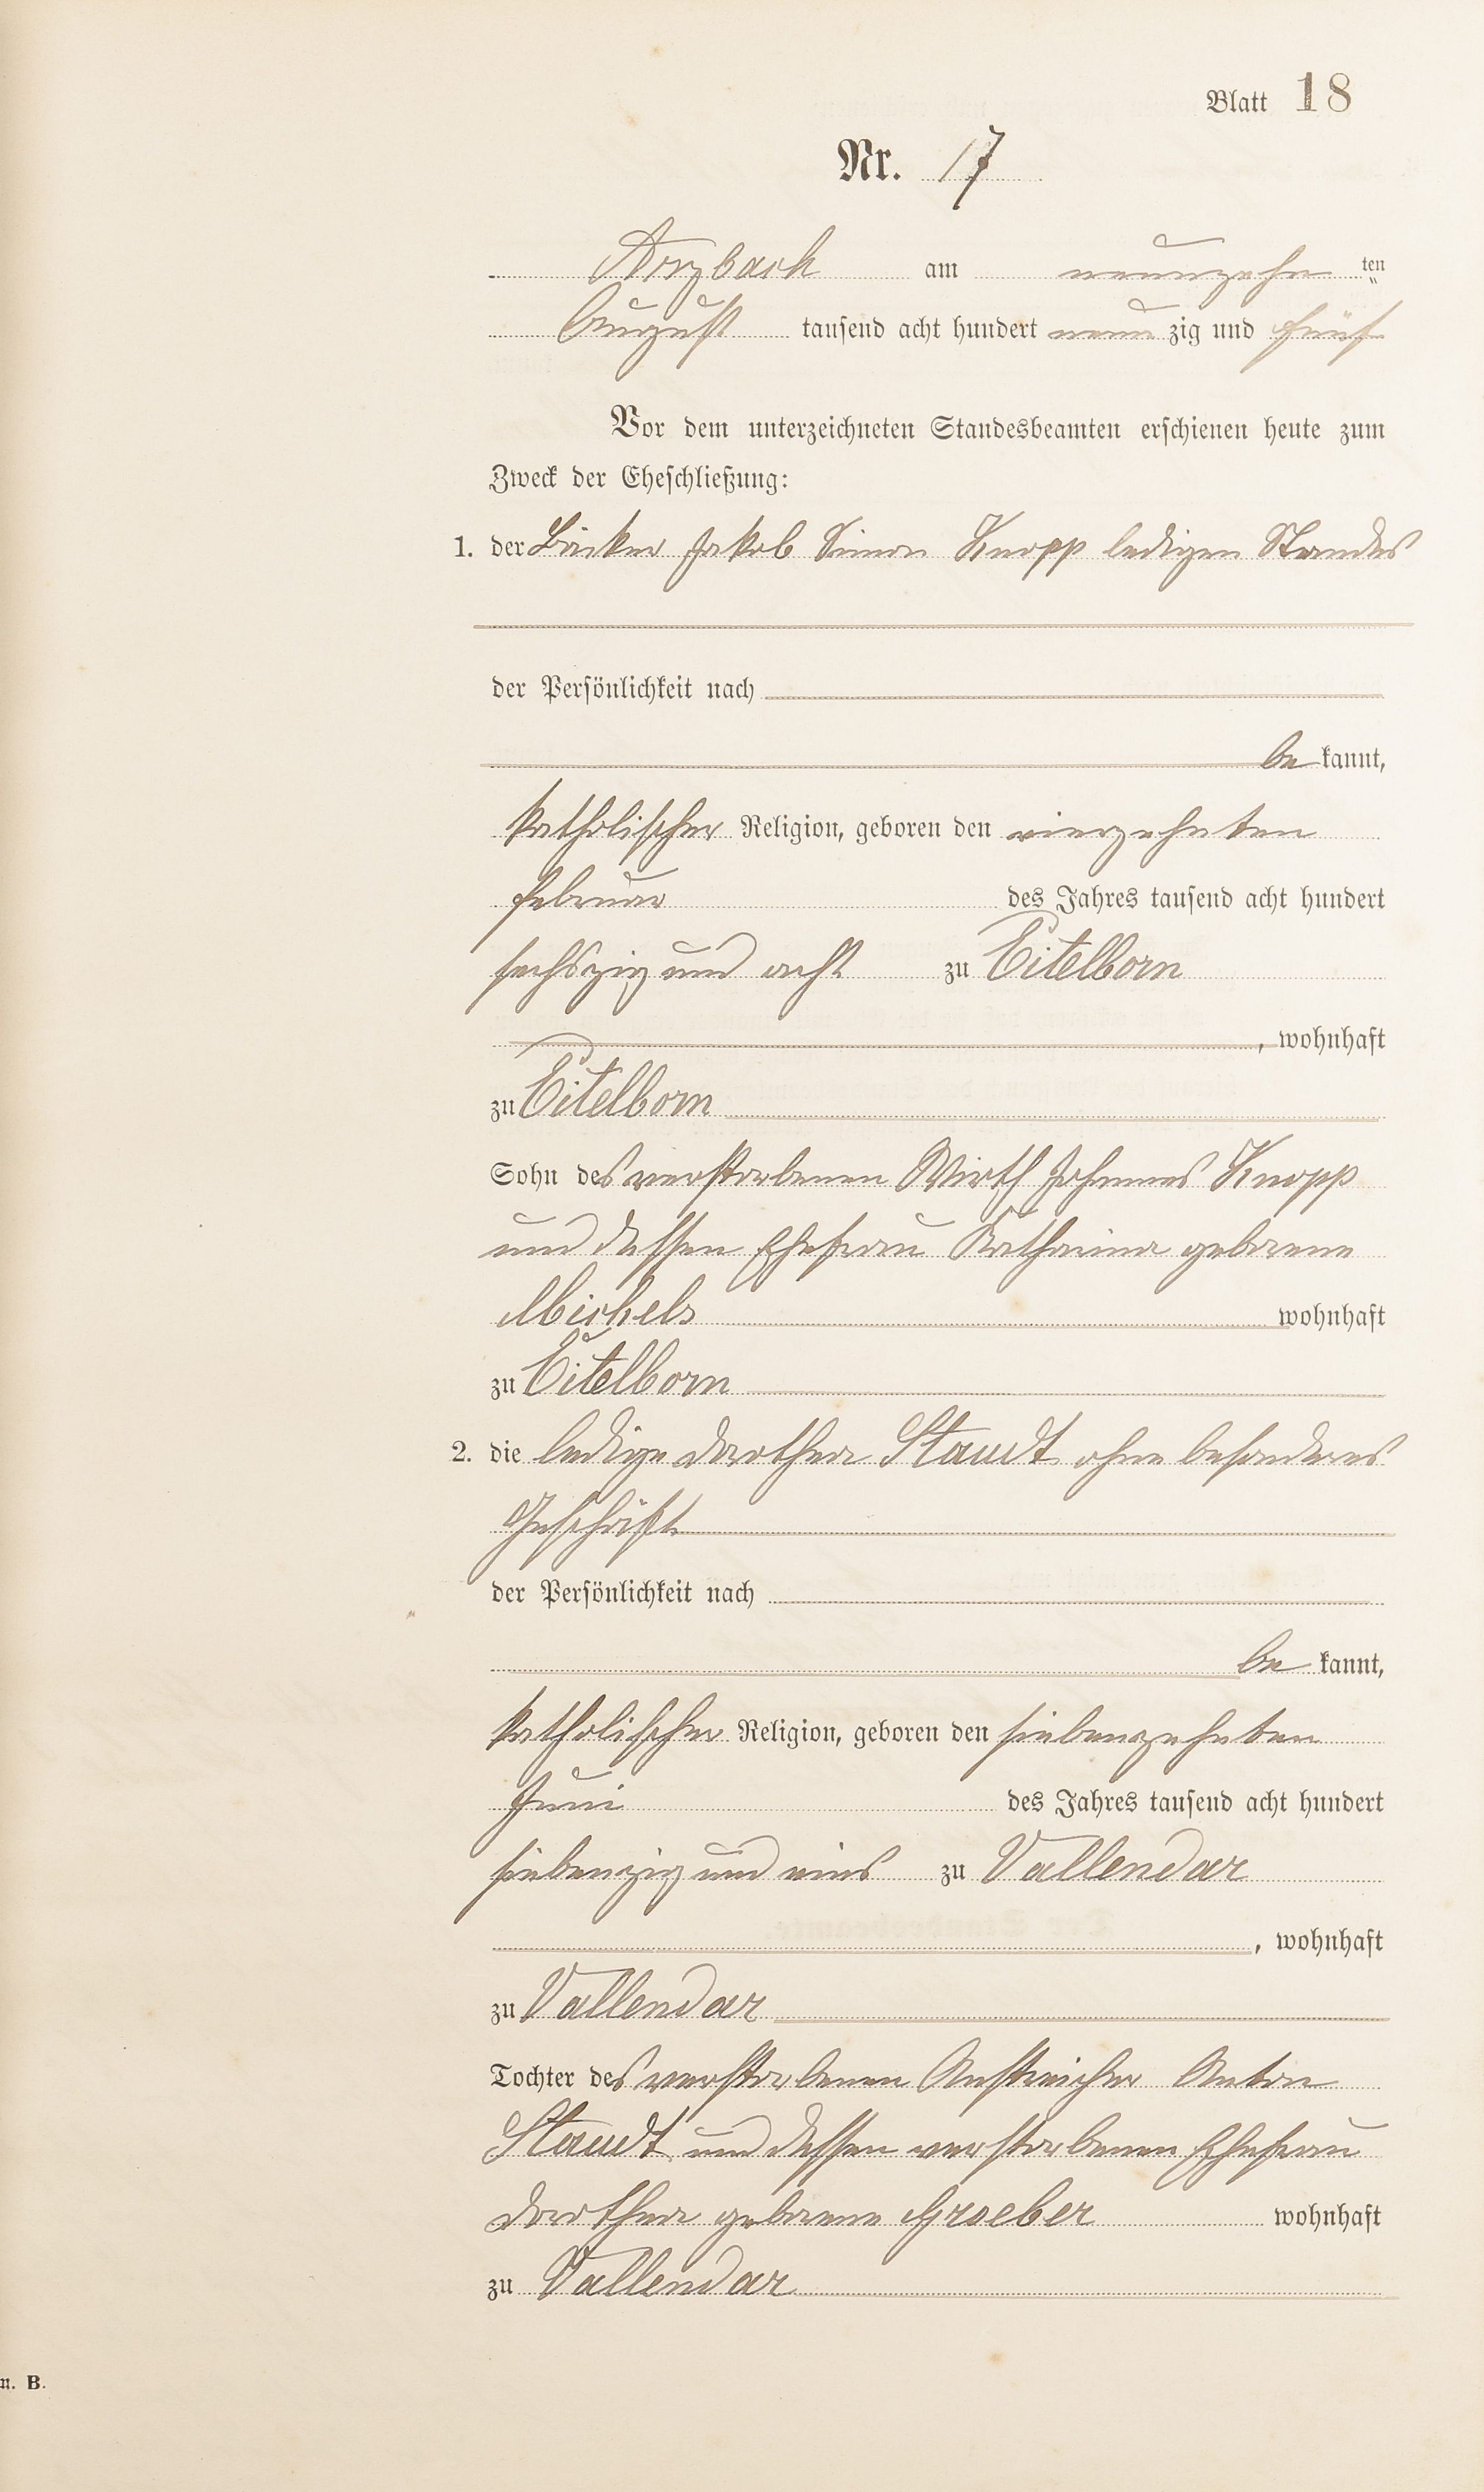 Blatt 18
Nr. 17
Arzbach am neunzehn ten
August tausend acht hundert neun zig und fünf
Vor dem unterzeichneten Standesbeamten erschienen heute zum
Zweck der Eheschließung:
1. der Bäcker Jakob Simon Knopp ledigen Standes
der Persönlichkeit nach
be kannt,
katholischer Religion, geboren den vierzehnten
Februar des Jahres tausend acht hundert
sechszig und acht zu Eitelborn
, wohnhaft
zu Eitelborn
Sohn des verstorbenen Wirth Johannes Knopp
und dessen Ehefrau Katharina geborene
Michels wohnhaft
zu Eitelborn
2. die ledige Dorothea Staudt ohne besonderes
Geschäft
der Persönlichkeit nach
be kannt,
katholischer Religion, geboren den siebenzehnten
Juni des Jahres tausend acht hundert
siebenzig und eins zu Vallendar
, wohnhaft
zu Vallendar
Tochter des verstorbenen Anstreicher Anton
Staudt und dessen verstorbenen Ehefrau
Dorothea geborene Groeber wohnhaft
zu Vallendar
n. B.